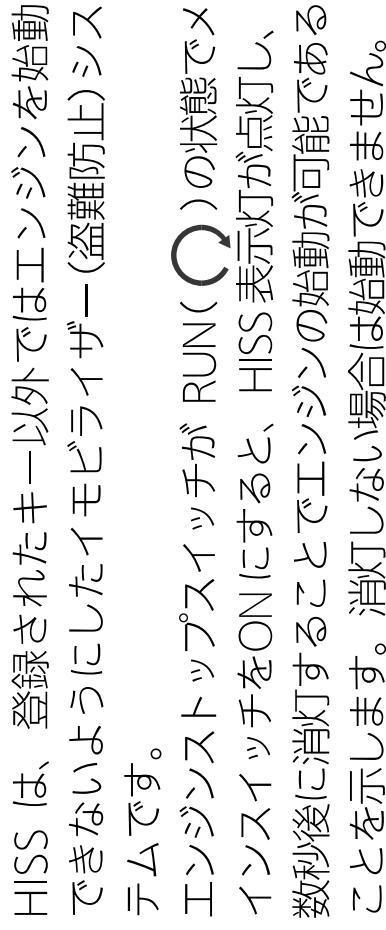 HISS は、登録されたキー以外ではエンジンを始動
できないようにしたイモビライザー(盗難防止)シス
テムです。
エンジンストップスイッチが RUN( )の状態でメ
インスイッチをONにすると、HISS 表示灯が点灯し、
数秒後に消灯することでエンジンの始動が可能である
ことを示します。消灯しない場合は始動できません。